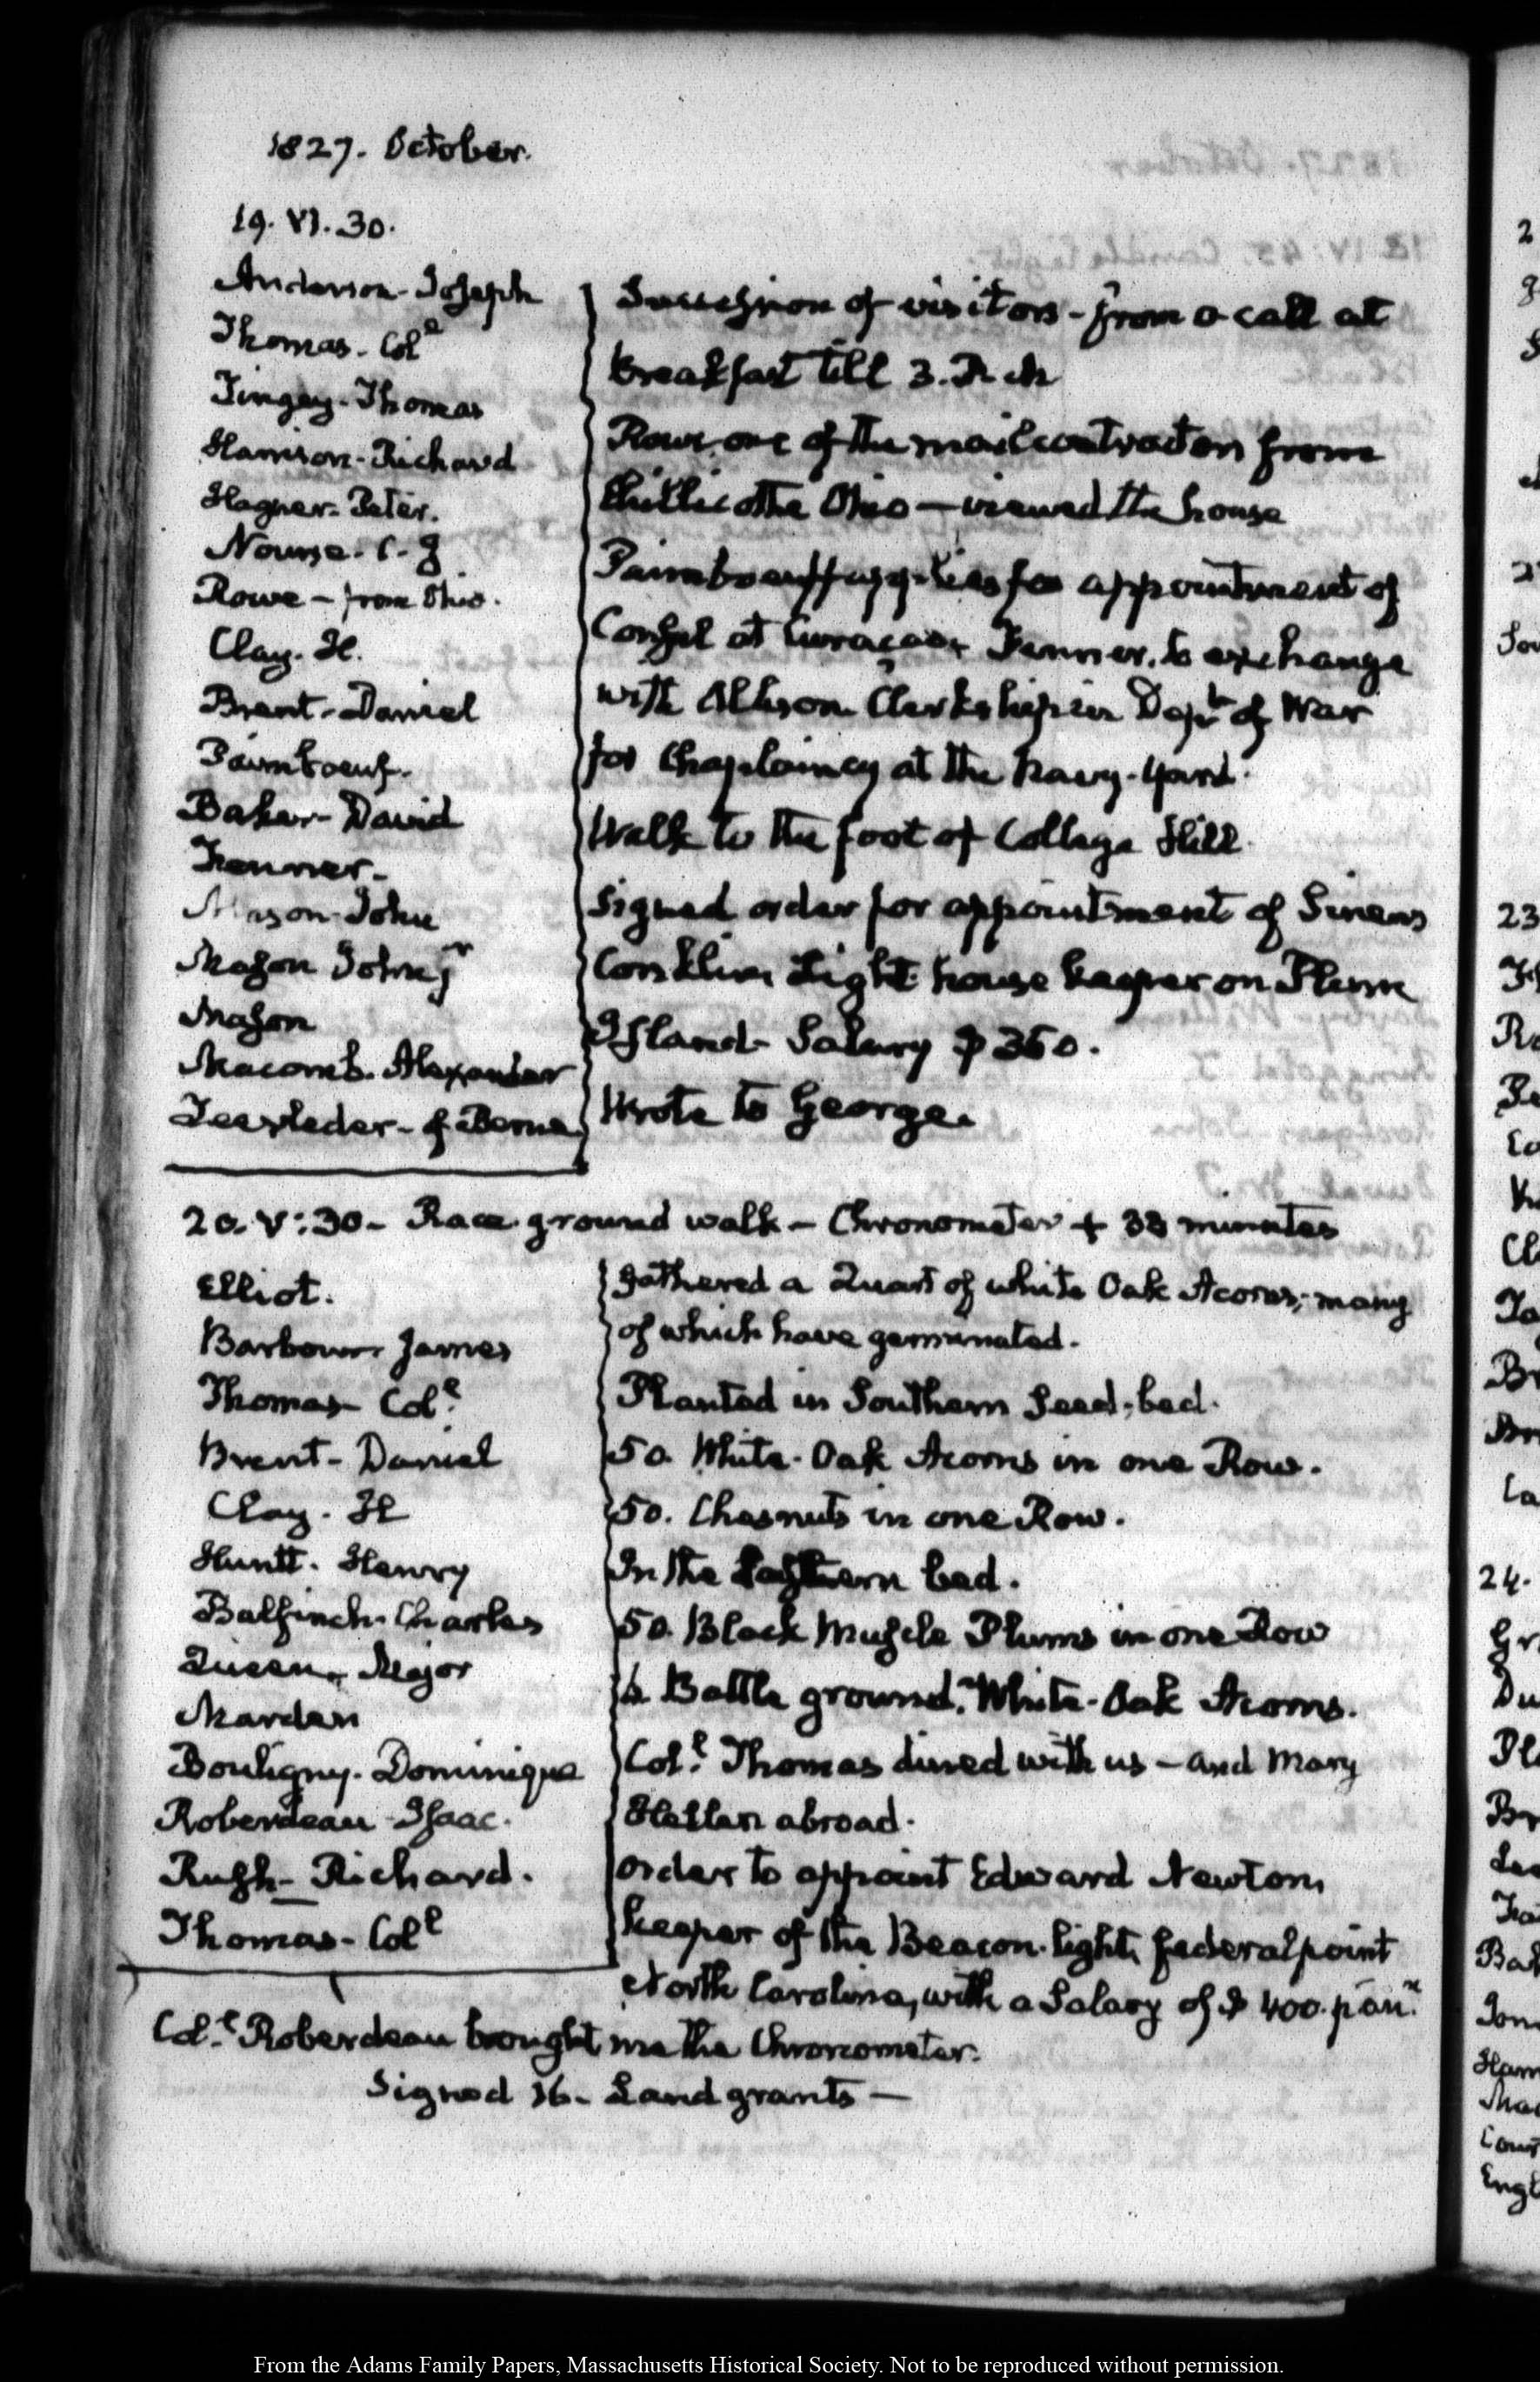 1827. October.
19. VI. 30.
Anderson- Joseph
Thomas- Col.
Tingey- Thomas
Harrison- Richard
Hagner- Peter.
Nourse- C. J
Rowe- from Ohio.
Clay. H.
Brent- Daniel
Paimboeuf.
Baker- David
Fenner-
Mason- John
Mason John jr
Mason
Macomb. Alexander
of Berne
Succession of visitors- from a call at
breakfast till 3. P. M
Rowe, one of the mail contractors from
Chillicothe Ohio — viewed the house
Paimboeuf applies for appointment of
Consul at Curaçao. Fenner, to exchange
with Allison Clerkship in Dept of War
for Chaplaincy at the Navy-Yard.
Walk to the foot of College Hill.
Signed order for appointment of
Conklin Light-house keeper on Plum
Island- Salary $350.
Wrote to George.
20. V:30- Race ground walk- Chronometer + 38 minutes
Elliot.
Barbour- James
Thomas- Col.
Brent- Daniel
Clay. H
Huntt. Henry
Bulfinch- Charles
Queen, Major
Marden
Bouligny. Dominique
Roberdeau- Isaac.
Rush- Richard.
Thomas- Col
gathered a Quart of white Oak Acorns, many
of which have germinated.
Planted in Southern Seed-bed.
50. White-Oak Acorns in one Row.
50. Chesnuts in one Row.
In the Eastern bed.
50. Black Muscle Plums in one Row
Battle ground, White-Oak Acorns.
Col. Thomas dined with us- and Mary
Hellen abroad.
Order to appoint Edward Newton,
keeper of the Beacon-light, federal point
North Carolina, with a Salary of $400. p an.
Col. Roberdeau brought me the Chronometer.
Signed 16- Land grants —
From the Adams Family Papers, Massachusetts Historical Society. Not to be reproduced without permission.